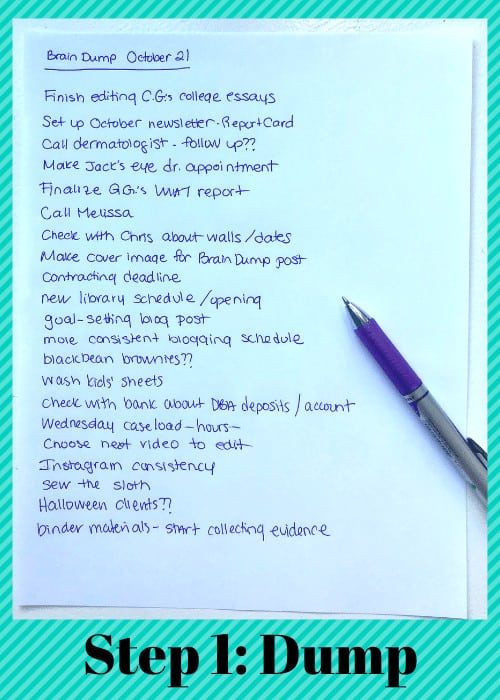 Brain Dump October 21
Finish editing C.G.'s college essays
Set up October newsletter - Report Card
Call dermatologist - follow up??
Make Jack's eye dr. appointment
Finalize G.G.'s WIAT report
Call Melissa
Check with Chris about walls/dates
Make cover image for Brain Dump post
Contracting deadline
new library schedule/opening
goal-setting blog post
more consistent blogging schedule
blackbean brownies??
wash kids' sheets
check with bank about DBA deposits/account
Wednesday caseload - hours -
Choose next video to edit
Instagram consistency
Sew the sloth
Halloween clients??
binder materials - start collecting evidence
Step 1: Dump